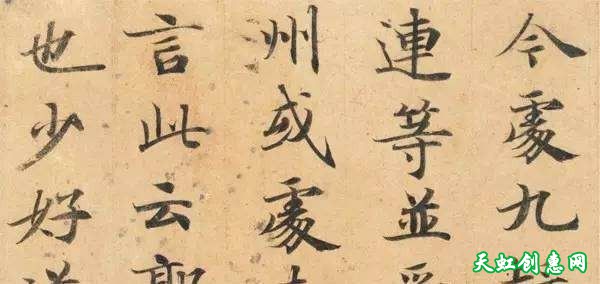 令處九
連等並
州或處
言此云
也少好
天虹创惠网